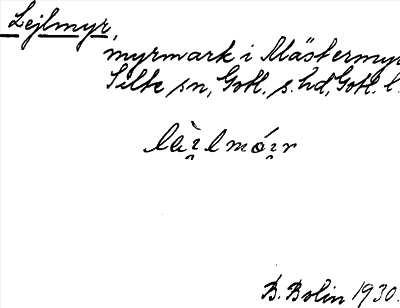 Lejlmyr,
myrmark i Mästermyr
Silte sn, Gotl. s. hd, Gotl. l.
lài̯lmói̯r
B. Bolin 1930.